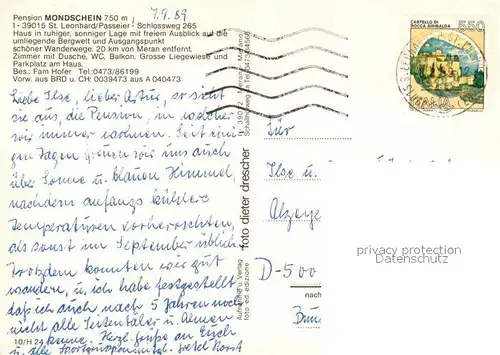 Pension MONDSCHEIN 750 m
I - 39015 St. Leonhard/Passeier - Schlossweg 265
Haus in ruhiger, sonniger Lage mit freiem Ausblick auf die
umliegende Bergwelt und Ausgangspunkt
schöner Wanderwege. 20 km von Meran entfernt.
Zimmer mit Dusche, WC, Balkon. Grosse Liegewiese und
Parkplatz am Haus.
Bes: Fam Hofer Tel:0473/86199
Vorw. aus BRD u. CH: 0039473 aus A 040473
7.9.89
Liebe Ilse, lieber Artur, so sieht
sie aus, die Pension, in welcher
wir immer wohnen. Seit eini-
gen Tagen freuen wir uns auch
über Sonne u. blauen Himmel,
nachdem anfangs kühlere
Temperaturen vorherrschten,
als sonst im September üblich.
Trotzdem konnten wir gut
wandern, u. ich habe festgestellt,
daß ich auch nach 5 Jahren noch
nicht alle Seitentäler u. Almen
kenne. Herzl. Grüße an Euch
u. alle
10/H 24
foto dieter drescher
Aufnahme u. Verlag
foto ed edizione
I - 39012 Meran
CASTELLO DI
ROCCA SINIBALDA
550
ITALIA
Für
Ilse u.
D-500
nach
privacy protection